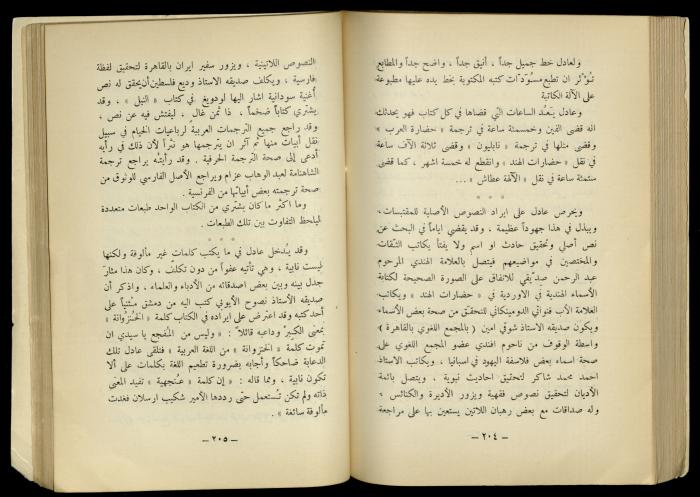 ولعادل خط جميل جداً ، أنيق جداً ، واضح جداً والمطابع
تؤثر ان تطبع مسودّات كتبه المكتوبة بخط يده عليها مطبوعة
على الآلة الكاتبة
وعادل يتعدد الساعات التي قضاها في كل كتاب فهو يحدثك
انه قضى الفين وخمسمئة ساعة في ترجمة « حضارة العرب »
وقضى مثلها في ترجمة « نابليون » وقضى ثلاثة الآف ساعة
في نقل « حضارات الهند » وانقطع له خمسة اشهر ، كما قضى
ستمئة ساعة في نقل « الآلهة عطاش » ...
ويحرص عادل على ايراد النصوص الأصلية للمقتبسات ،
ويبذل في هذا جهوداً عظيمة ، وقد يقضي اياماً في البحث عن
نص أصلي وتحقيق حادث او اسم ولا يفتأ يكاتب الثقات
والمختصين في مواضيعهم فيتصل بالعلامة الهندي المرحوم
عبد الرحمن صدّيقي للاتفاق على الصورة الصحيحة لكتابة
الأسماء الهندية في الاوردية في « حضارات الهند » ويكاتب
العلامة الأب قنواتي الدومينكاني للتحقق من صحة بعض الأسماء
ويكون صديقه الاستاذ شوقي امين ( بالمجمع اللغوي بالقاهرة )
واسطة الوقوف من ناحوم افندي عضو المجمع اللغوي على
صحة اسماء بعض فلاسفة اليهود في اسبانيا ، ويكاتب الاستاذ
احمد محمد شاكر لتحقيق احاديث نبوية ، ويتصل بائمة
الأديان لتحقيق نصوص فقهية ويزور الأديرة والكنائس ،
وله صداقات مع بعض رهبان اللاتين يستعين بها على مراجعة
— ٢٠٤ —
النصوص اللاتينية ، ويزور سفير ايران بالقاهرة لتحقيق لفظة
فارسية ، ويكلف صديقه الاستاذ وديع فلسطين أن يحقق له نص
أغنية سودانية اشار اليها لودويغ في كتاب « النيل » ، وقد
يشتري كتاباً ضخماً ، ذا ثمن غال ، ليفتش فيه عن نص ،
وقد راجع جميع الترجمات العربية لرباعيات الخيام في سبيل
نقل أبيات منها ثم آثر ان يترجمها هو نثراً لأن ذلك في رأيه
أدعى إلى صحة الترجمة الحرفية . وقد رأيته يراجع ترجمة
الشاهنامة لعبد الوهاب عزام ويراجع الأصل الفارسي للوثوق من
صحة ترجمته بعض أبياتها من الفرنسية .
وما اكثر ما كان يشتري من الكتاب الواحد طبعات متعددة
ليلحظ التفاوت بين تلك الطبعات .
* * *
وقد يُدخل عادل في ما يكتب كلمات غير مألوفة ولكنها
ليست نابية ، وهي تأتيه عفواً من دون تكلف ، وكان هذا مثار
جدل بينه وبين بعض اصدقائه من الأدباء والعلماء ، واذكر أن
صديقه الأستاذ نصوح الأيوبي كتب اليه من دمشق مثنياً على
أحد كتبه وقد اعترض على ايراده في الكتاب كلمة « الخنزوانة »
بمعنى الكبر وداعبه قائلاً : « وليس من المفجع يا سيدي ان
تموت كلمة « الخنزوانة » من اللغة العربية » فتلقى عادل تلك
الدعابة ضاحكاً وأجابه بضرورة تطعيم اللغة بكلمات على ألا
تكون نابية ، ومما قاله : « إن كلمة « عنجهية » تفيد المعنى
ذاته ولم تكن تُستعمل حتى رددها الأمير شكيب ارسلان فغدت
مألوفة سائغة » .
— ٢٠٥ —